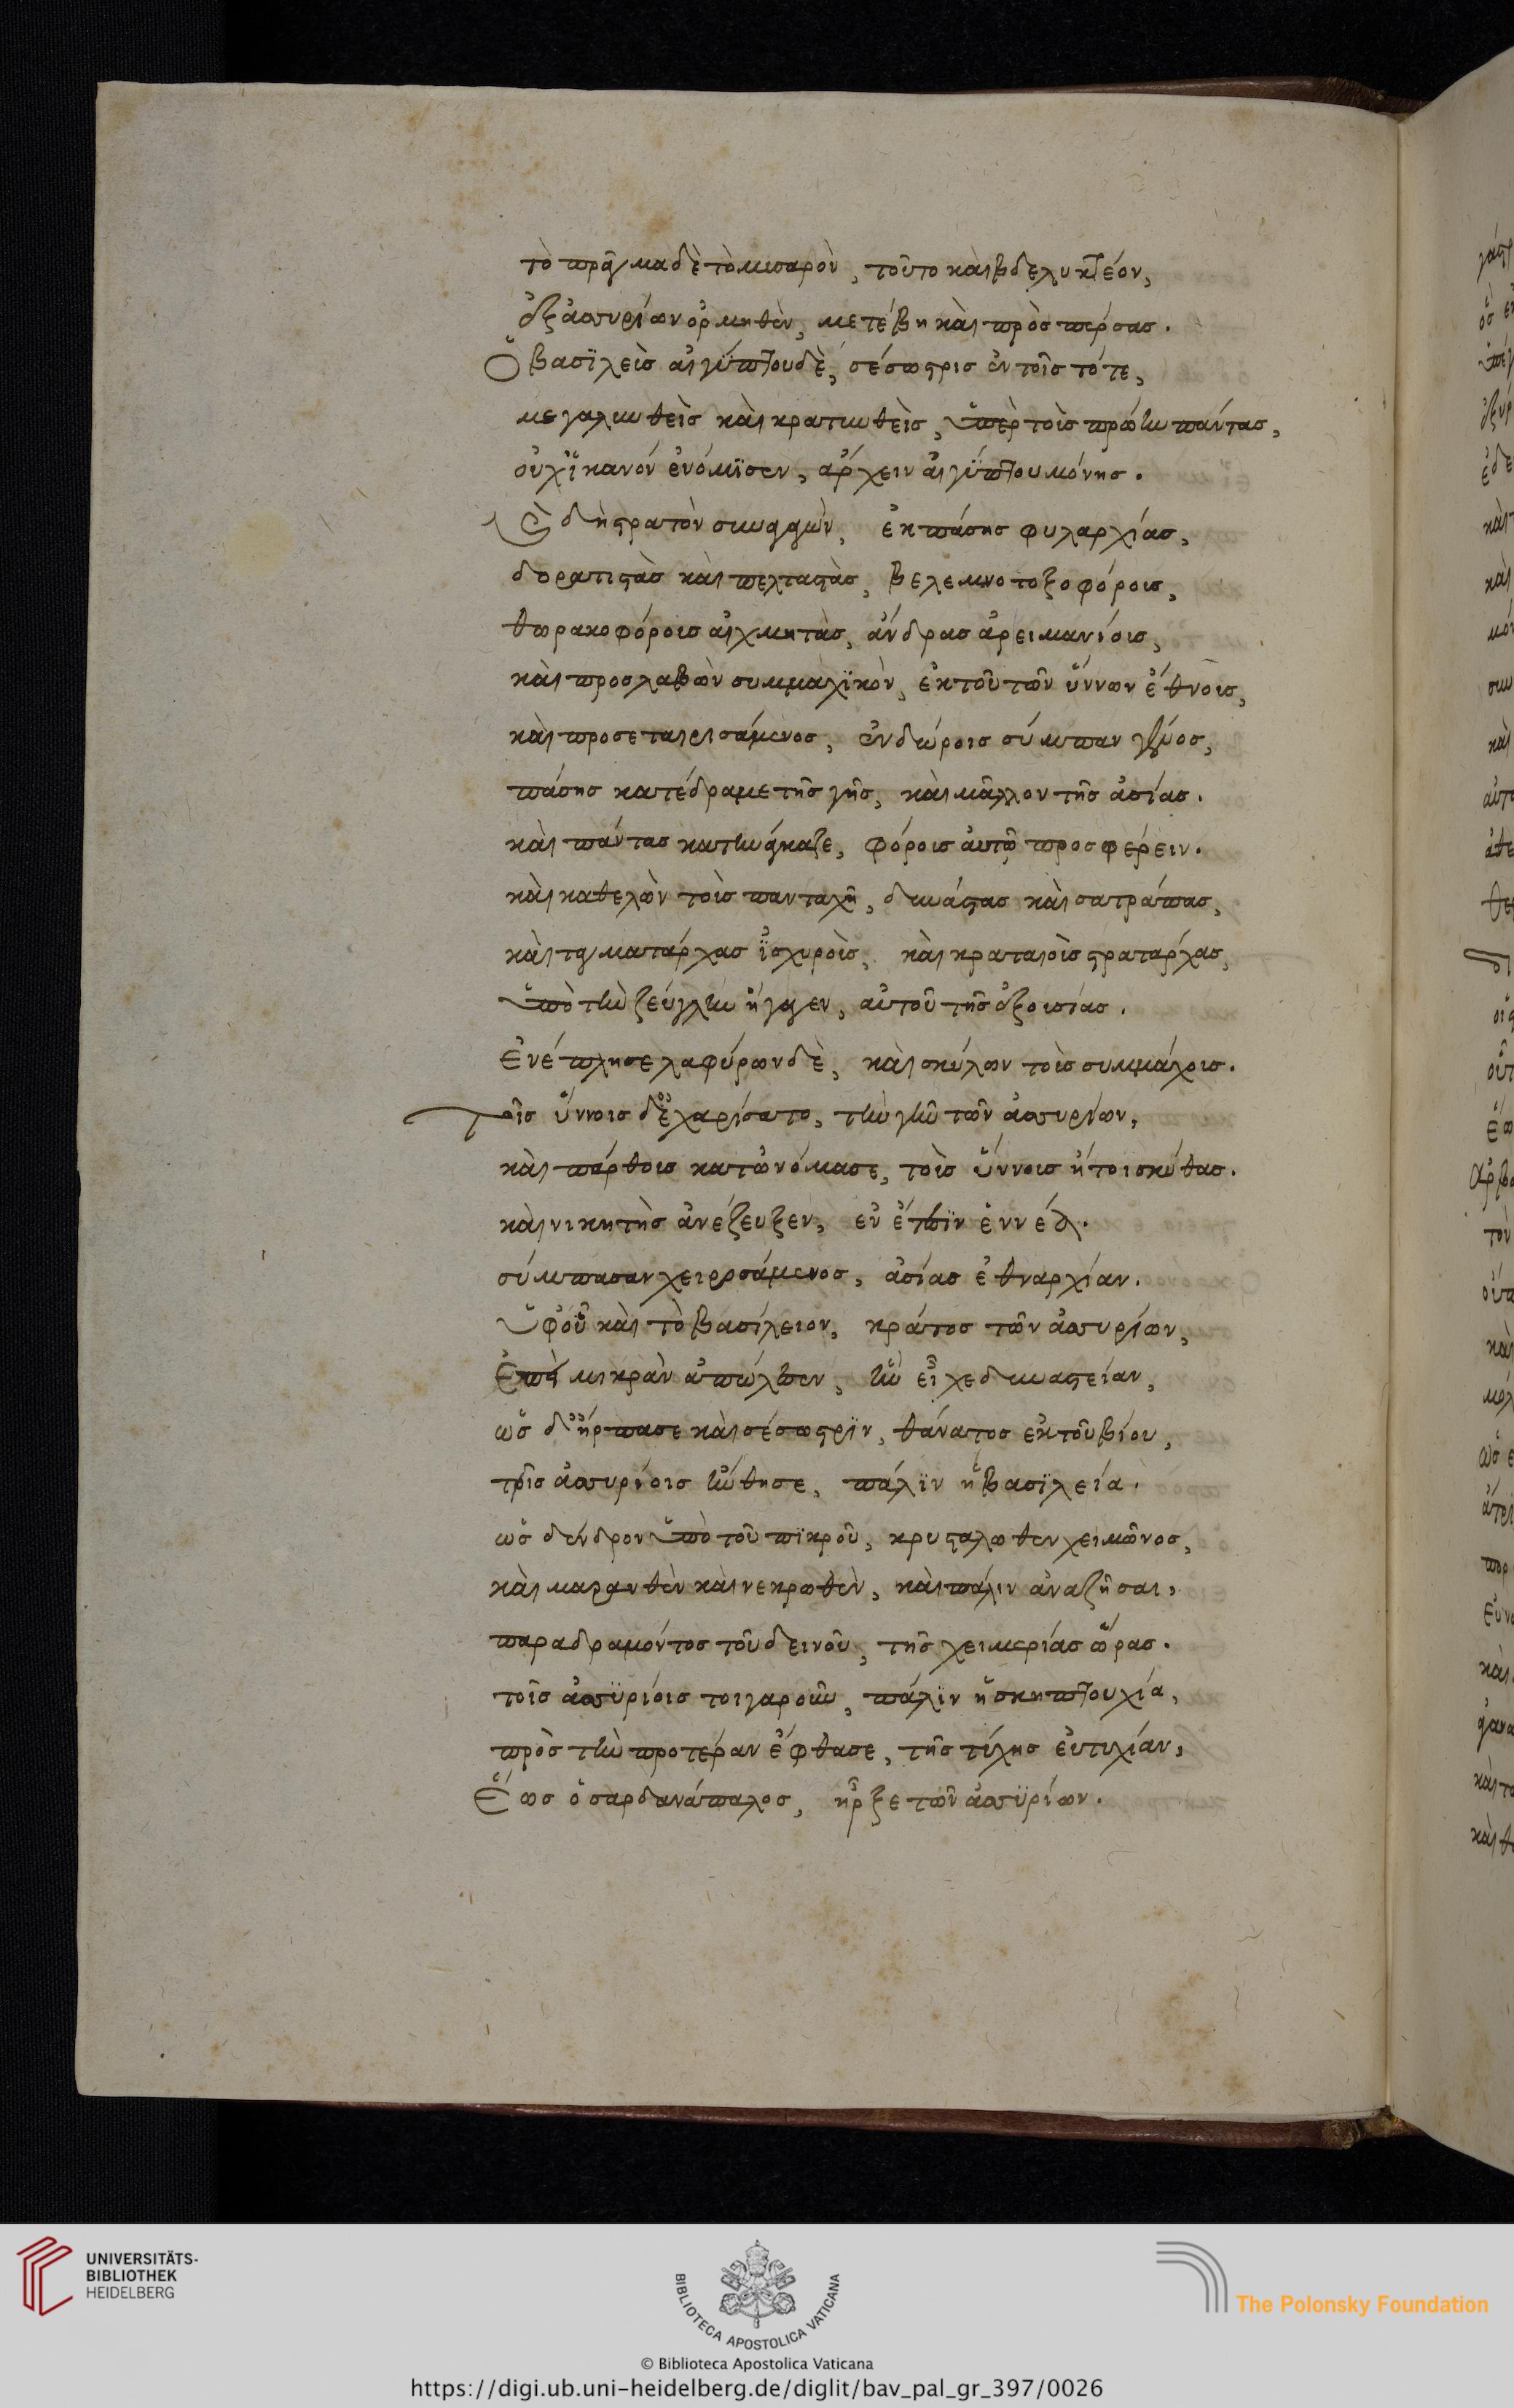 τὸ πρᾶγμα δὲ τὸ μυσαρὸν, τοῦτο καὶ βδελυκτέον,
ἐξ ἀσσυρίων ὁρμηθὲν, μετέβη καὶ πρὸς πέρσας.
Ὁ βασϊλεὺς αἰγύπτου δὲ, σέσωστρις ἐν τοῖς τότε,
μεγαλυνθεὶς καὶ κρατυνθεὶς, ὑπὲρ τοὺς πρώην πάντας,
οὐχ ἱκανόν ἐνόμϊσεν, ἄρχειν αἰγύπτου μόνης.
δὴ στρατὸν συναγαγὼν, ἐκ πάσης φυλαρχίας,
δορατιστὰς καὶ πελταστὰς, βελεμνοτοξοφόρους,
θωρακοφόρους αἰχμητὰς, ἄνδρας ἀρειμανίους,
καὶ προσλαβὼν συμμαχϊκὸν, ἐκ τοῦ τῶν οὕννων ἔθνους,
καὶ προσεταιρισάμενος, ἐν δώροις σύμπαν γένος,
πάσης κατέδραμε τῆς γῆς, καὶ μᾶλλον τῆς ἀσίας.
καὶ πάντας κατηνάγκαζε, φόρους αὐτῷ προσφέρειν.
καὶ καθελὼν τοὺς πανταχῆ, δυνάστας καὶ σατράπας,
καὶ ταγματάρχας ἰσχυροὺς, καὶ κραταιοὺς στρατάρχας,
ὑπὸ τὴν ζεύγλην ἤγαγεν, αὐτοῦ τῆς ἐξουσίας.
Ἐνέπλησε λαφύρων δὲ, καὶ σκύλων τοὺς συμμάχους.
Τοῖς οὕννοις δ' ἐχαρίσατο, τὴν γῆν τῶν ἀσσυρίων,
καὶ πάρθους κατωνόμασε, τοὺς οὕννους ἤτοι σκύθας.
καὶ νικητὴς ἀνέζευξεν, ἐν ἔτεσϊν ἐννέα.
σύμπασαν χειρωσάμενος, ἀσίας ἐθναρχίαν.
ὑφ' οὗ καὶ τὸ βασίλειον, κράτος τῶν ἀσσυρίων,
Ἐπὶ μικρὰν ἀπώλεσεν, ἣν εἶχε δυναστείαν,
ὡς δ' ἥρπασε καὶ σέσωστρϊν, θάνατος ἐκ τοῦ βίου,
τοῖς ἀσσυρίοις ἤνθησε, πάλϊν ἡ βασϊλεία.
ὡς δένδρον ὑπὸ τοῦ πϊκροῦ, κρυσταλωθὲν χειμῶνος,
καὶ μαρανθὲν καὶ νεκρωθὲν, καὶ πάλιν ἀναζῆσαν,
παραδραμόντος τοῦ δεινοῦ, τῆς χειμερίας ὥρας.
τοῖς ἀσσϋρίοις τοιγαροῦν, πάλϊν ἡ σκηπτουχία,
πρὸς τὴν προτέραν ἔφθασε, τῆς τύχης εὐτυχίαν,
Ἕως ὁ σαρδανάπαλος, ἦρξε τῶν ἀσσϋρίων.
UNIVERSITÄTS-
BIBLIOTHEK
HEIDELBERG
BIBLIOTECA APOSTOLICA VATICANA
The Polonsky Foundation
© Biblioteca Apostolica Vaticana
https://digi.ub.uni-heidelberg.de/diglit/bav_pal_gr_397/0026